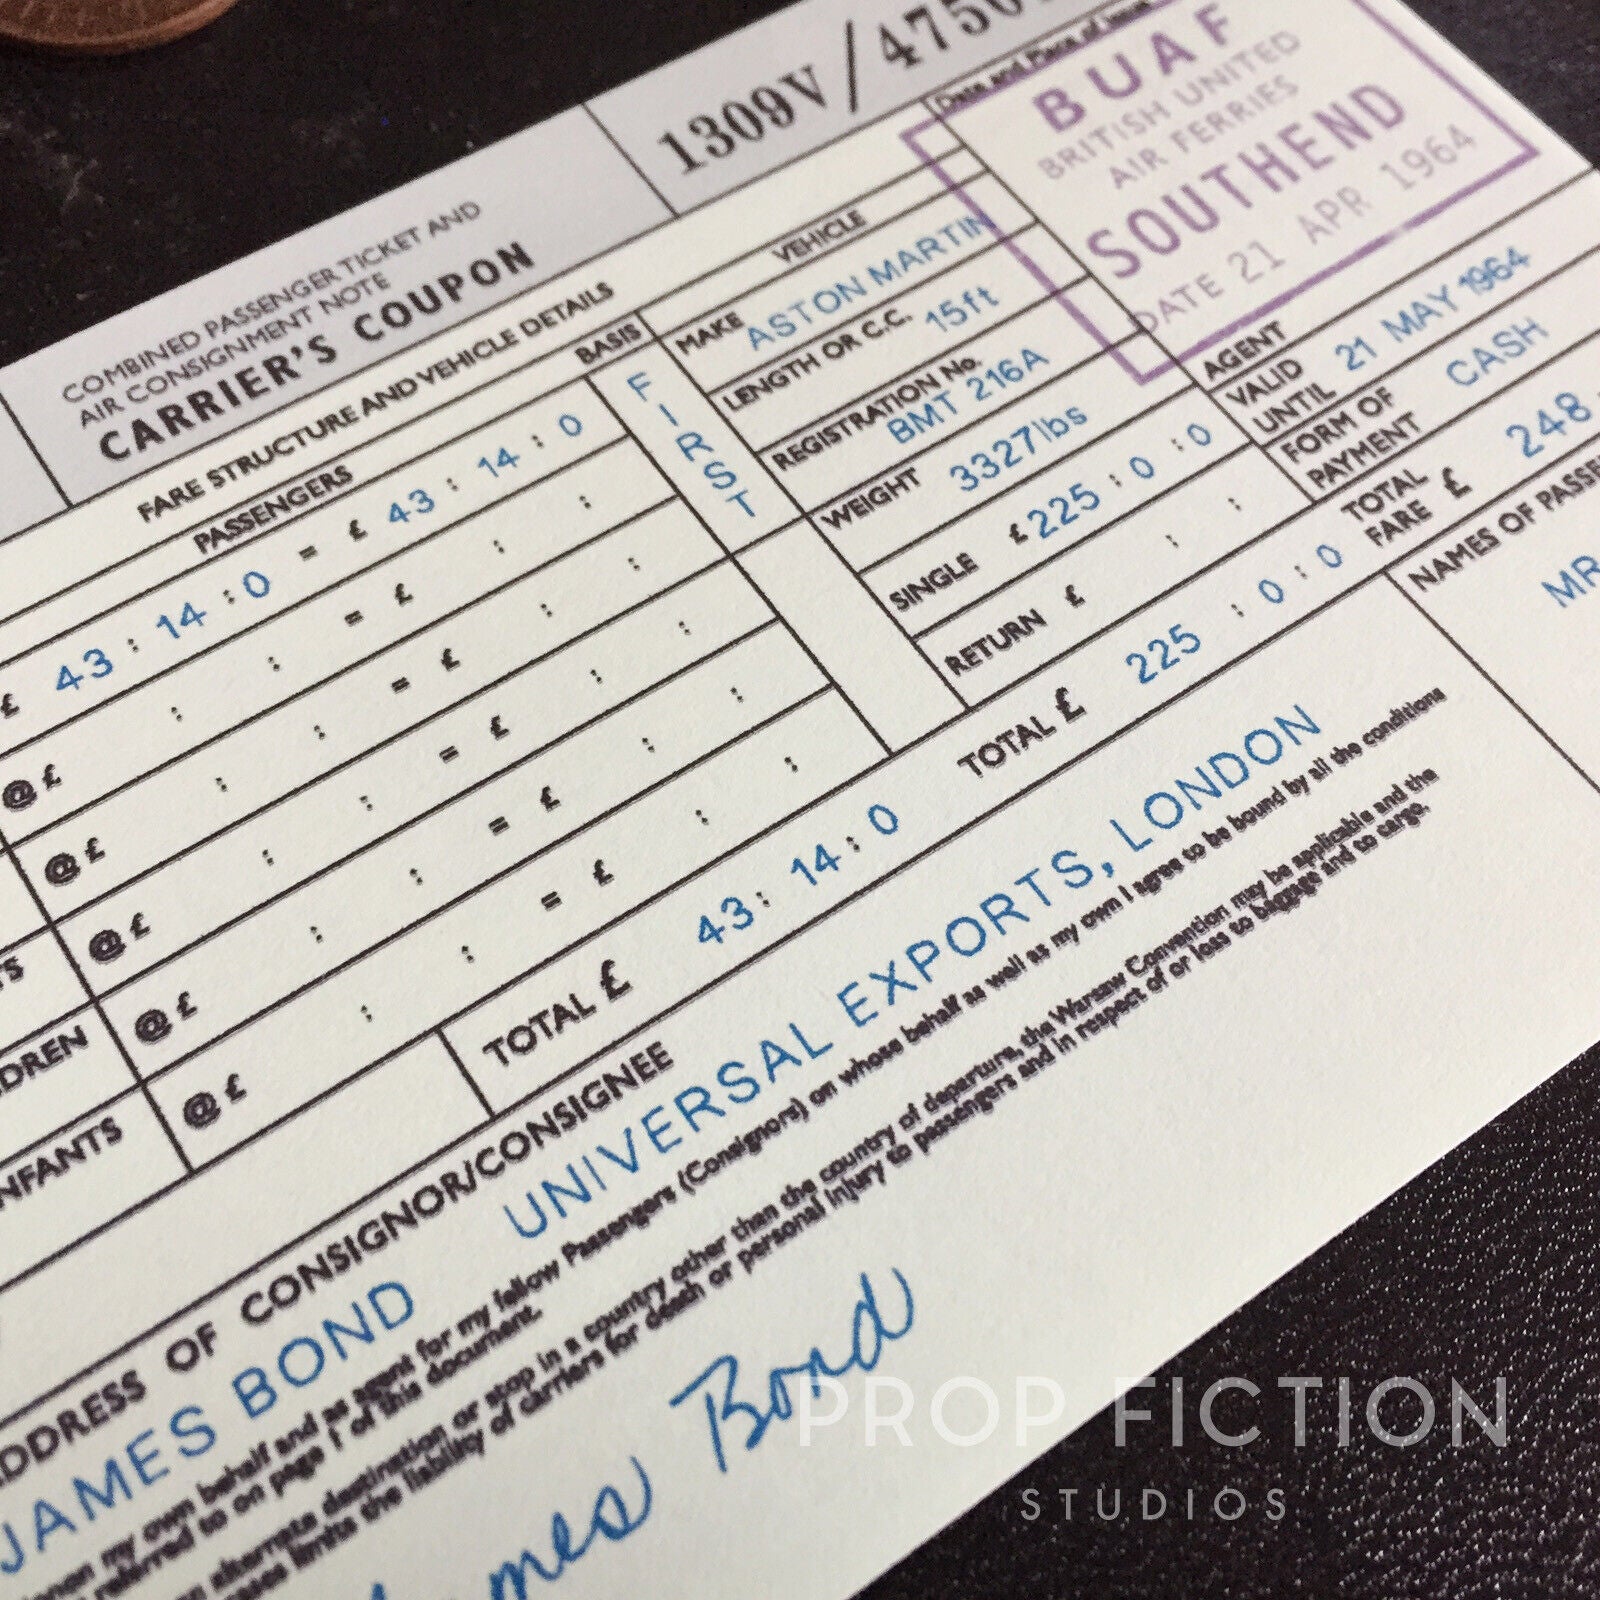 1309V/4750
Date and Place of Issue
BUAF
BRITISH UNITED
AIR FERRIES
SOUTHEND
DATE 21 APR 1964
COMBINED PASSENGER TICKET AND
AIR CONSIGNMENT NOTE
CARRIER'S COUPON
FARE STRUCTURE AND VEHICLE DETAILS
PASSENGERS
BASIS
VEHICLE
FIRST
MAKE ASTON MARTIN
LENGTH OR C.C. 15ft
REGISTRATION No.
BMT 216A
WEIGHT 3327lbs
SINGLE £ 225 : 0 : 0
RETURN £ : :
TOTAL £ 225 : 0 : 0
AGENT
VALID
UNTIL 21 MAY 1964
FORM OF
PAYMENT CASH
TOTAL
FARE £ 248
NAMES OF
MR
£ 43 : 14 : 0 = £ 43 : 14 : 0
@ £ : : = £ : :
@ £ : : = £ : :
@ £ : : = £ : :
@ £ : : = £ : :
@ £ : : = £ : :
TOTAL £ 43 : 14 : 0
ADDRESS OF CONSIGNOR/CONSIGNEE
JAMES BOND UNIVERSAL EXPORTS, LONDON
on my own behalf and as agent for my fellow Passengers (Consignors) on whose behalf as well as my own I agree to be bound by all the conditions
referred to on page 1 of this document.
alternate destination or stop in a country other than the country of departure, the Warsaw Convention may be applicable and the
limits the liability of carriers for death or personal injury to passengers and in respect of or loss to baggage and to cargo.
James Bond
PROP FICTION
STUDIOS